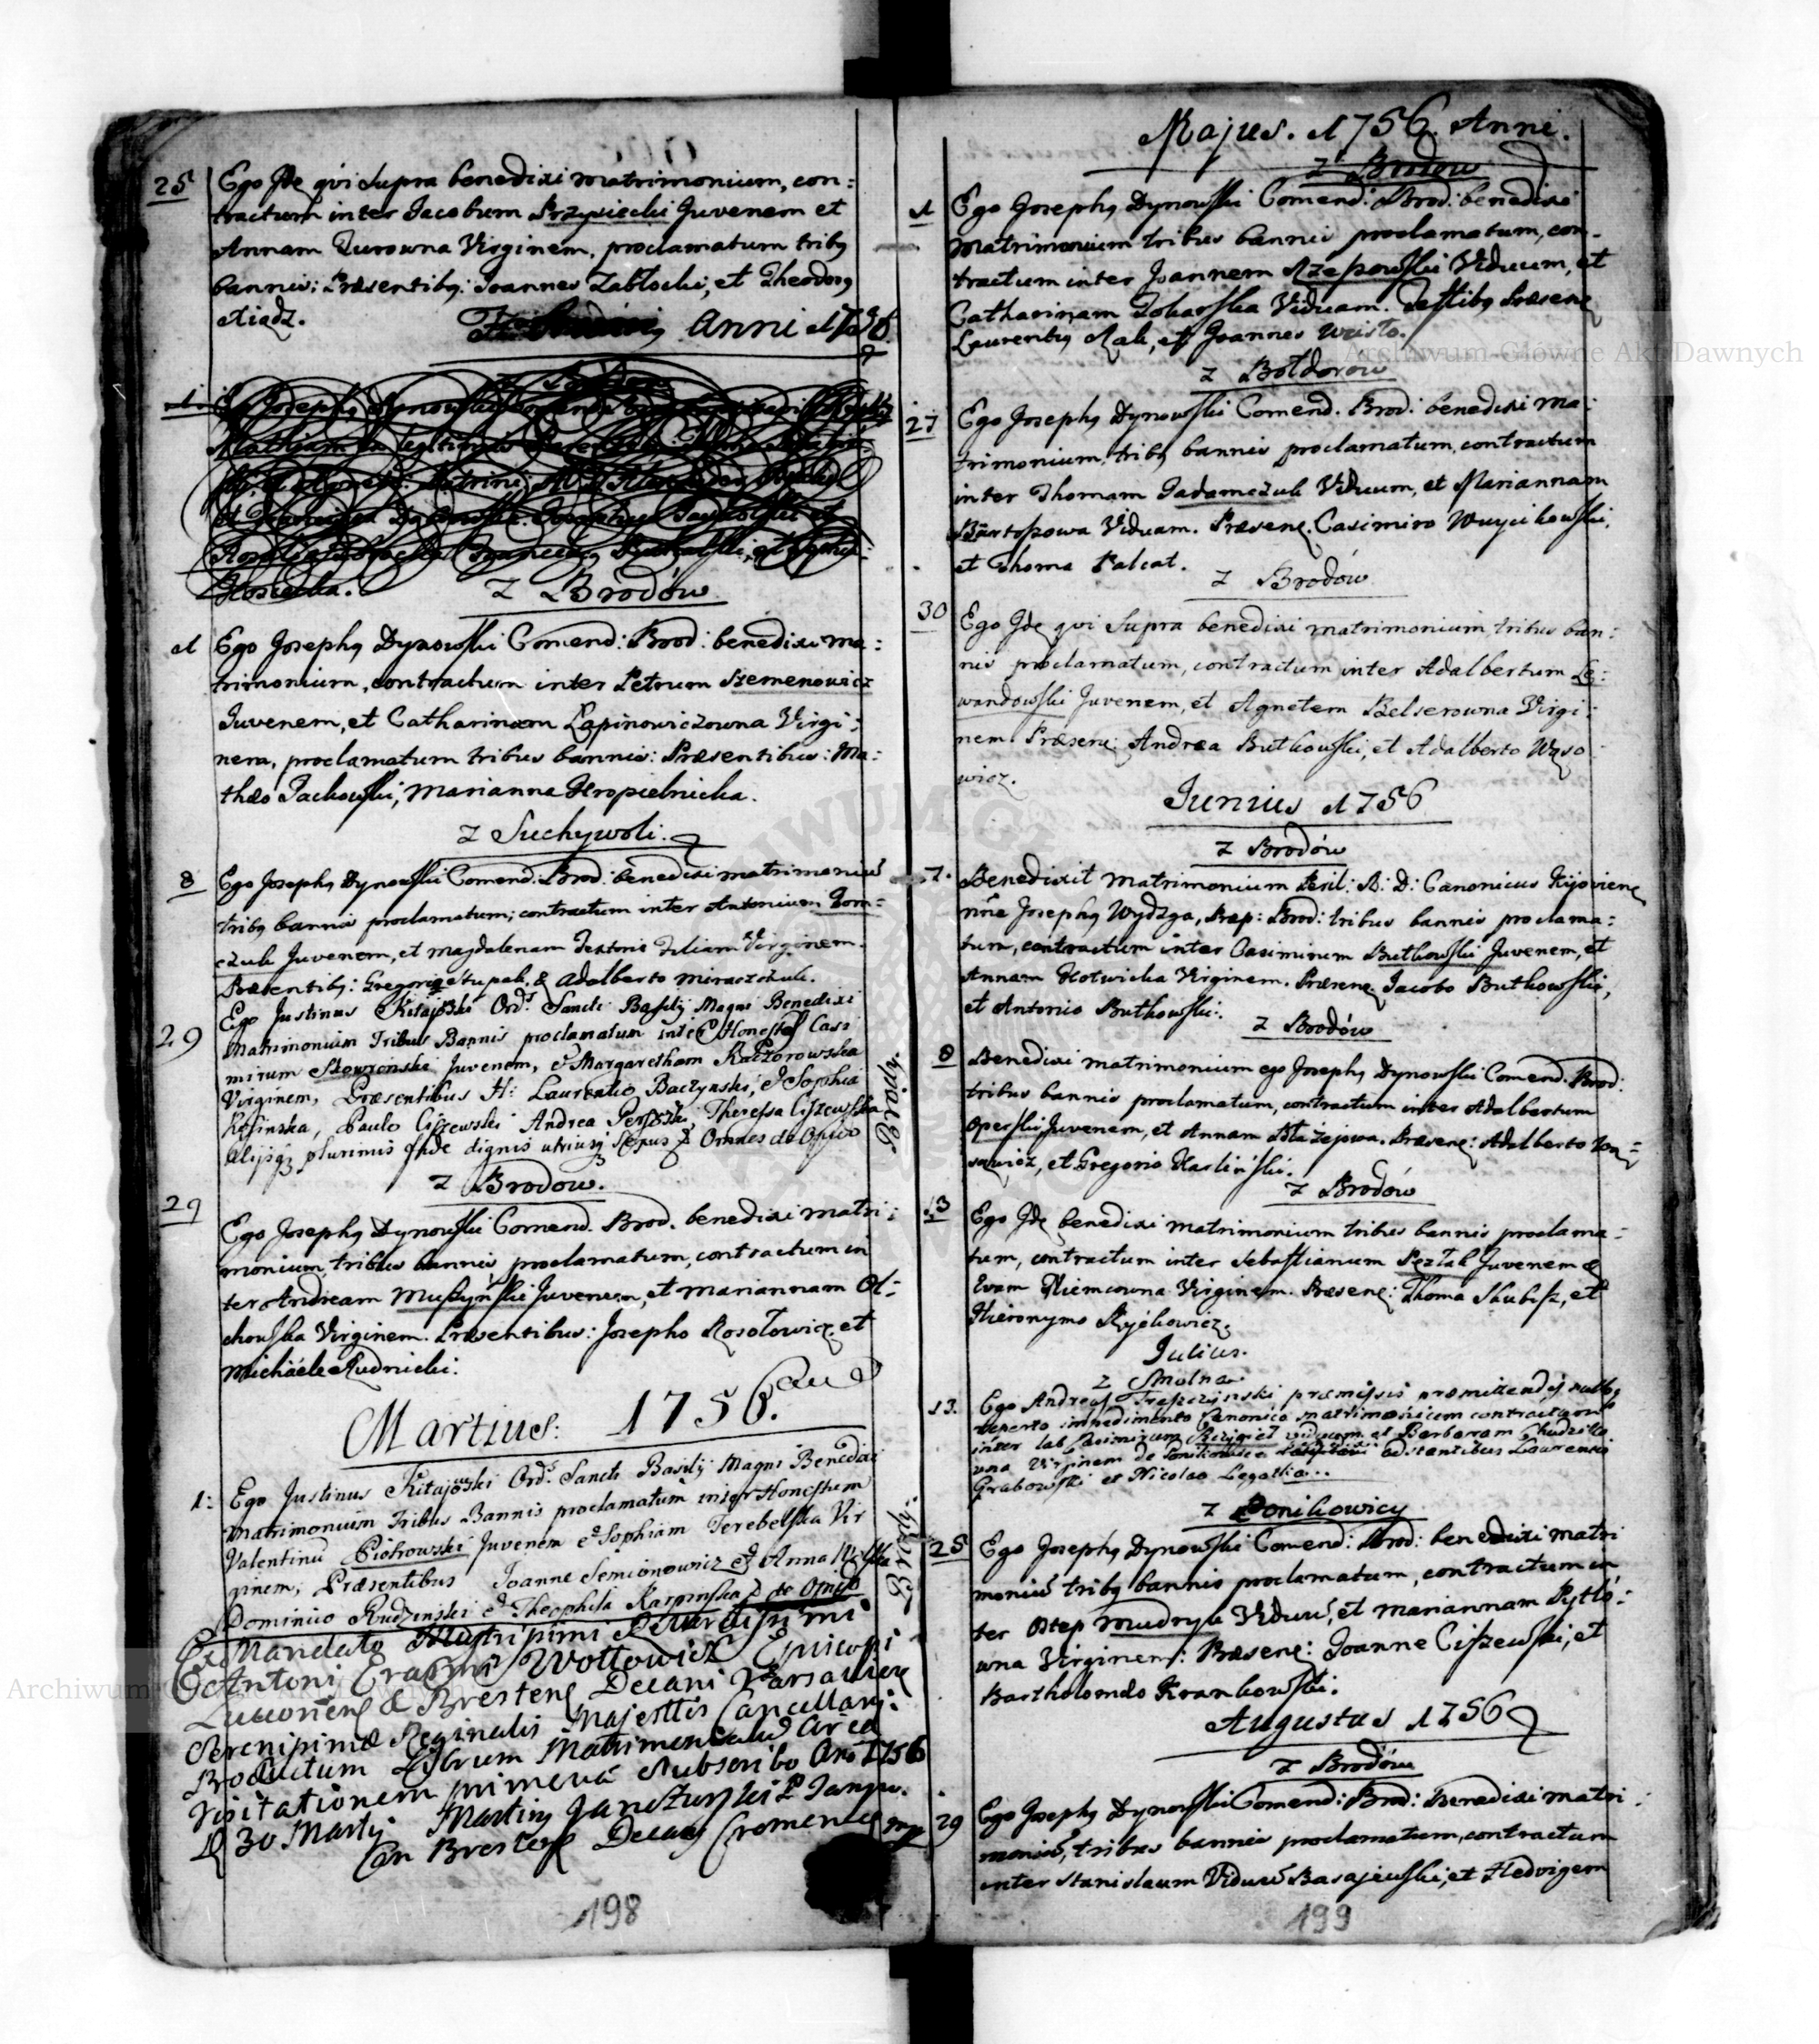 25 Ego Jde qvi supra benedixi matrimonium, con:
tractum inter Jacobum Przysiecki Juvenem et
Annam Turowna Virginem, proclamatum tribg
bannis; Præsentibg: Joannes Zabłocki, et Theodorg
Anni 1756
z Brodów
1 Ego Josephg Dynowski Comend: Brod: benedixi ma:
trimonium, contractum inter Petrum Szemenowicz
Juvenem, et Catharinam Łapinowiczowna Virgi:
nem, proclamatum tribus bannis: Præsentibus: Ma:
thæo Jackowski, Marianna Kropielnicka.
z Suchywoli.
8 Ego Josephg Dynowski Comend: Brod: benedixi matrimoniu
tribg bannis proclamatum; contractum inter Antonium Tom=
czuk Juvenem, et Magdalenam Textoris Filiam Virginem.
Præsentibg: Gregorio Stupak, & Adalberto Miraszczuk.
29 Ego Justinus Kitajowski Ords Sancti Basilij Magni Benedixi
Matrimonium Tribus Bannis proclamatum inter Honestos Casi
mirum Juvenem, et Margaretham Kaczorowska
Virginem, Præsentibus H: Laurentio Baczynski, et Sophia
Kosinska, Paulo Ciszewski Andrea Theressa Ciszewska
Alijsq plurimis fide dignis utriusq Sexus Omnes de Opido
Brody.
z Brodow.
29 Ego Josephg Dynowski Comend. Brod. benedixi matri:
monium, tribus bannis proclamatum, contractum in
ter Andream Muszyński Juvenem, et Mariannam Ol:
chowska Virginem. Præsentibus: Josepho Rosołowicz, et
Michaele Rudnicki.
Martius: 1756.
1: Ego Justinus Kitajowski Ords Sancti Basilij Magni Benedixi
Matrimonium Tribus Bannis proclamatum inter Honestum
Valentinu Piotrowski Juvenem et Sophiam Terebelska Vir
ginem, Præsentibus Joanne Semionowicz et Anna
Dominico Rudzinski et Theophila Karpinska de Opido
Brody:
Ex Mandato Illustrissimi Reverdissimi
Antoni Erasmi Wołłowicz Episcopi
Luceorien & Bresten Decani Varsavien
Serenissimæ Reginalis Majesttis Cancellarij
Productum Librum Matrimon circa
Visitationem subscribo Ano 1756
D 30 Martij Marting Janczurski P
Can Bresten Decang Cremenec mp
198
Majus. 1756. Anni.
z Brodow
1 Ego Josephg Dynowski Comend: Brod: benedixi
matrimonium tribus bannis proclamatum, con-
tractum inter Joannem Rzepowski Viduum, et
Catharinam Tokarska Viduam. Testibg Præsene
Laurentig Rak, et Joannes Wristo.
z Bołdorow
27 Ego Josephg Dynowski Comend. Brod: benedixi ma:
trimonium, tribg bannis proclamatum, contractum
inter Thomam Jadamczuk Viduum, et Mariannam
Bartoszowa Viduam. Præsene. Casimiro Wuycikowski,
et Thoma Palcat.
z Brodów
30 Ego Jde qvi supra benedixi matrimonium tribus ban:
nis proclamatum, contractum inter Adalbertum Le:
wandowski Juvenem, et Agnetem Belserowna Virgi:
nem. Præsene: Andrea Butkowski, et Adalberto Wąso
wicz.
Junius 1756
z Brodów
7. Benedixit matrimonium Peril: R: D: Canonicus Kijoviene
nine Josephg Wydzga, Præp: Brod: tribus bannis proclama:
tum, contractum inter Casimirum Butkowski Juvenem, et
Annam Kotwicka Virginem. Præsene Jacobo Butkowski,
et Antonio Butkowski.
z Brodów
8 Benedixi matrimonium ego Josephg Dynowski Comend. Brod:
tribus bannis proclamatum, contractum inter Adalbertum
Operski Juvenem, et Annam Błażejowa. Præsene: Adalberto Wą=
sowicz, et Gregorio Karliński.
z Brodów
13 Ego Jde benedixi matrimonium tribus bannis proclama:
tum, contractum inter Sebastianum Peztak Juvenem &
Evam Niemcowna Virginem. Præsene: Thoma Skubisz, et
Hieronymo Ryćkowicz.
Julius.
z Smolna
13. Ego Andreas Trepczynski præmissis præmittendis nullog
reperto impedimento Canonico matrimonium contractum
inter lab Casimirum viduum et Barbaram Chudzik
wna Virginem de Ponikowica adstantibus Laurentio
Grabowski et Nicolao Legatka..
z Ponikowicy
25 Ego Josephg Dynowski Comend: Brod: benedixi matri
moniu tribg bannis proclamatum, contractum in
ter Ostap Mudryk Viduu, et Mariannam Pytló:
wna Virginem: Præsene: Joanne Ciszewski, et
Bartholomeo Krankowski.
Augustus 1756
z Brodów
29 Ego Josephg Dynowski Comend: Brod: Benedixi matri:
moniu, tribus bannis proclamatum, contractum
inter Stanislaum Viduu Basajewski, et Hedvigem
199
Archiwum Główne Akt Dawnych
Archiwum Główne Akt Dawnych